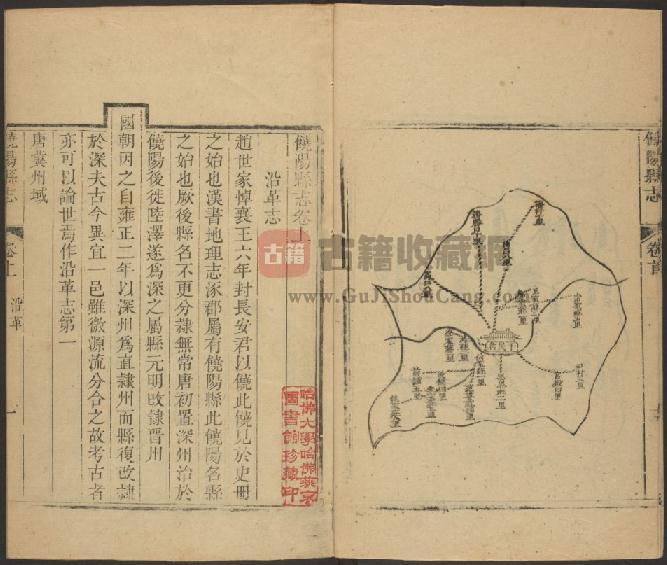 饒陽縣志
卷首
饒陽縣志卷上
沿革志
趙世家悼襄王六年封長安君以饒此饒見於史冊
之始也漢書地理志涿郡屬有饒陽縣此饒陽名縣
之始也厥後縣名不更分隸無常唐初置深州治於
饒陽後徙陸澤遂爲深之屬縣元明改隸晋州
國朝因之自雍正二年以深州爲直隸州而縣復改隸
於深夫古今異宜一邑雖微源流分合之故考古者
亦可以論世焉作沿革志第一
唐冀州域
饒陽縣志
卷上
沿革
一
哈佛大學哈佛燕京
圖書館珍藏印
古籍收藏网
www.GuJiShouCang.com